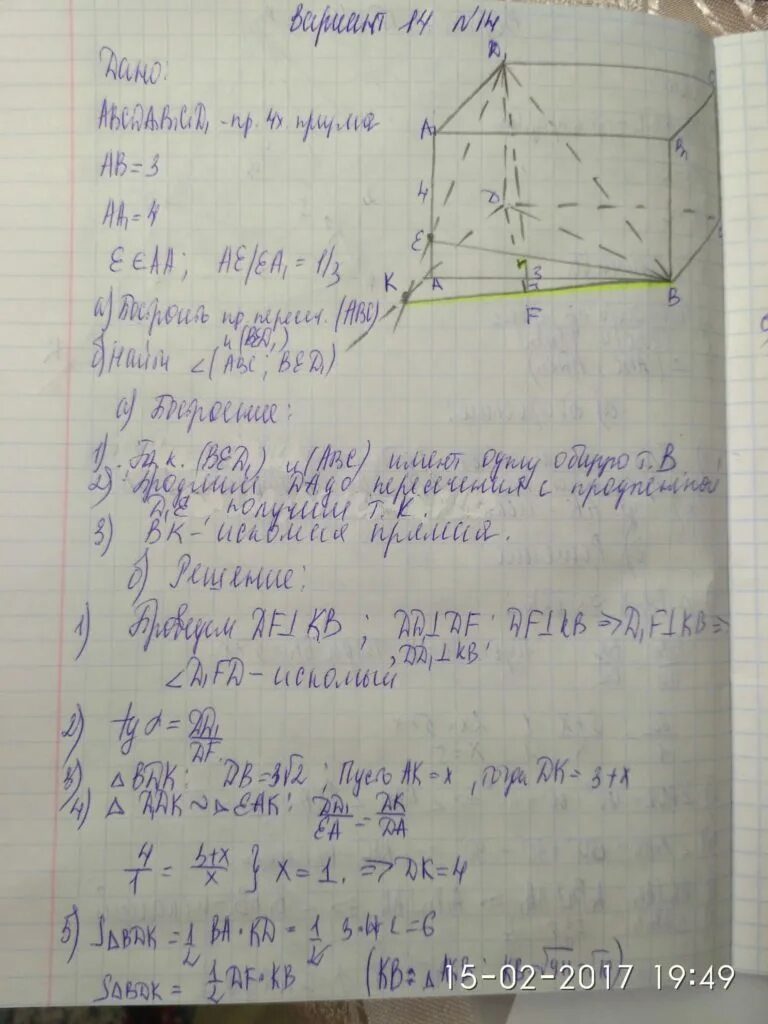 Вариант 14 №14
Дано:
ABCDA₁B₁C₁D₁ - пр. 4х. призма
AB = 3
AA₁ = 4
E ∈ AA₁; AE/EA₁ = 1/3
а) Построить пр. перес. (ABC)
и (BED₁)
б) Найти ∠(ABC; BED₁)
D₁
A₁
B₁
4
D
E
K
A
3
B
F
а) Построение:
1) Т.к. (BED₁) и (ABC) имеют одну общую т. B
2) Продлим DA до пересечения с продленной
D₁E, получим т. K.
3) BK - искомая прямая.
б) Решение:
1) Проведем DF⊥KB; DD₁⊥DF; DF⊥KB ⇒ D₁F⊥KB ⇒
, DD₁⊥KB
∠D₁FD - искомый
2) tg α = DD₁/DF
3) △BDK: DB = 3√2; Пусть AK = x, тогда DK = 3+x
4) △DD₁K ~ △EAK: DD₁/EA = DK/DA
4/1 = 3+x/x } x = 1. ⇒ DK = 4
5) S△BDK = 1/2 BA·KD = 1/2 · 3·4 = 6
S△BDK = 1/2 DF·KB
15-02-2017 19:49